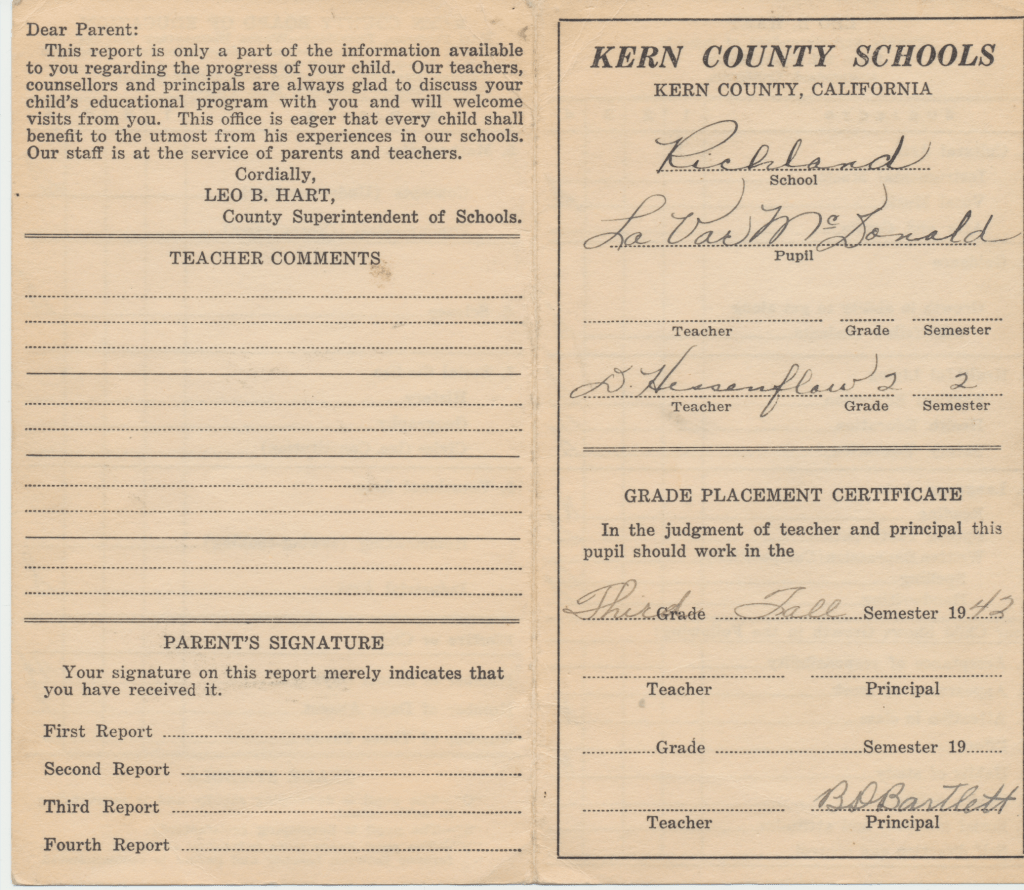 Dear Parent:
This report is only a part of the information available
to you regarding the progress of your child. Our teachers,
counsellors and principals are always glad to discuss your
child's educational program with you and will welcome
visits from you. This office is eager that every child shall
benefit to the utmost from his experiences in our schools.
Our staff is at the service of parents and teachers.
Cordially,
LEO B. HART,
County Superintendent of Schools.
TEACHER COMMENTS
PARENT'S SIGNATURE
Your signature on this report merely indicates that
you have received it.
First Report
Second Report
Third Report
Fourth Report
KERN COUNTY SCHOOLS
KERN COUNTY, CALIFORNIA
Richland
School
La Var McDonald
Pupil
Teacher Grade Semester
D. Hessenflow 2 2
Teacher Grade Semester
GRADE PLACEMENT CERTIFICATE
In the judgment of teacher and principal this
pupil should work in the
Third Grade Fall Semester 1942
Teacher Principal
Grade Semester 19
BDBartlett
Teacher Principal